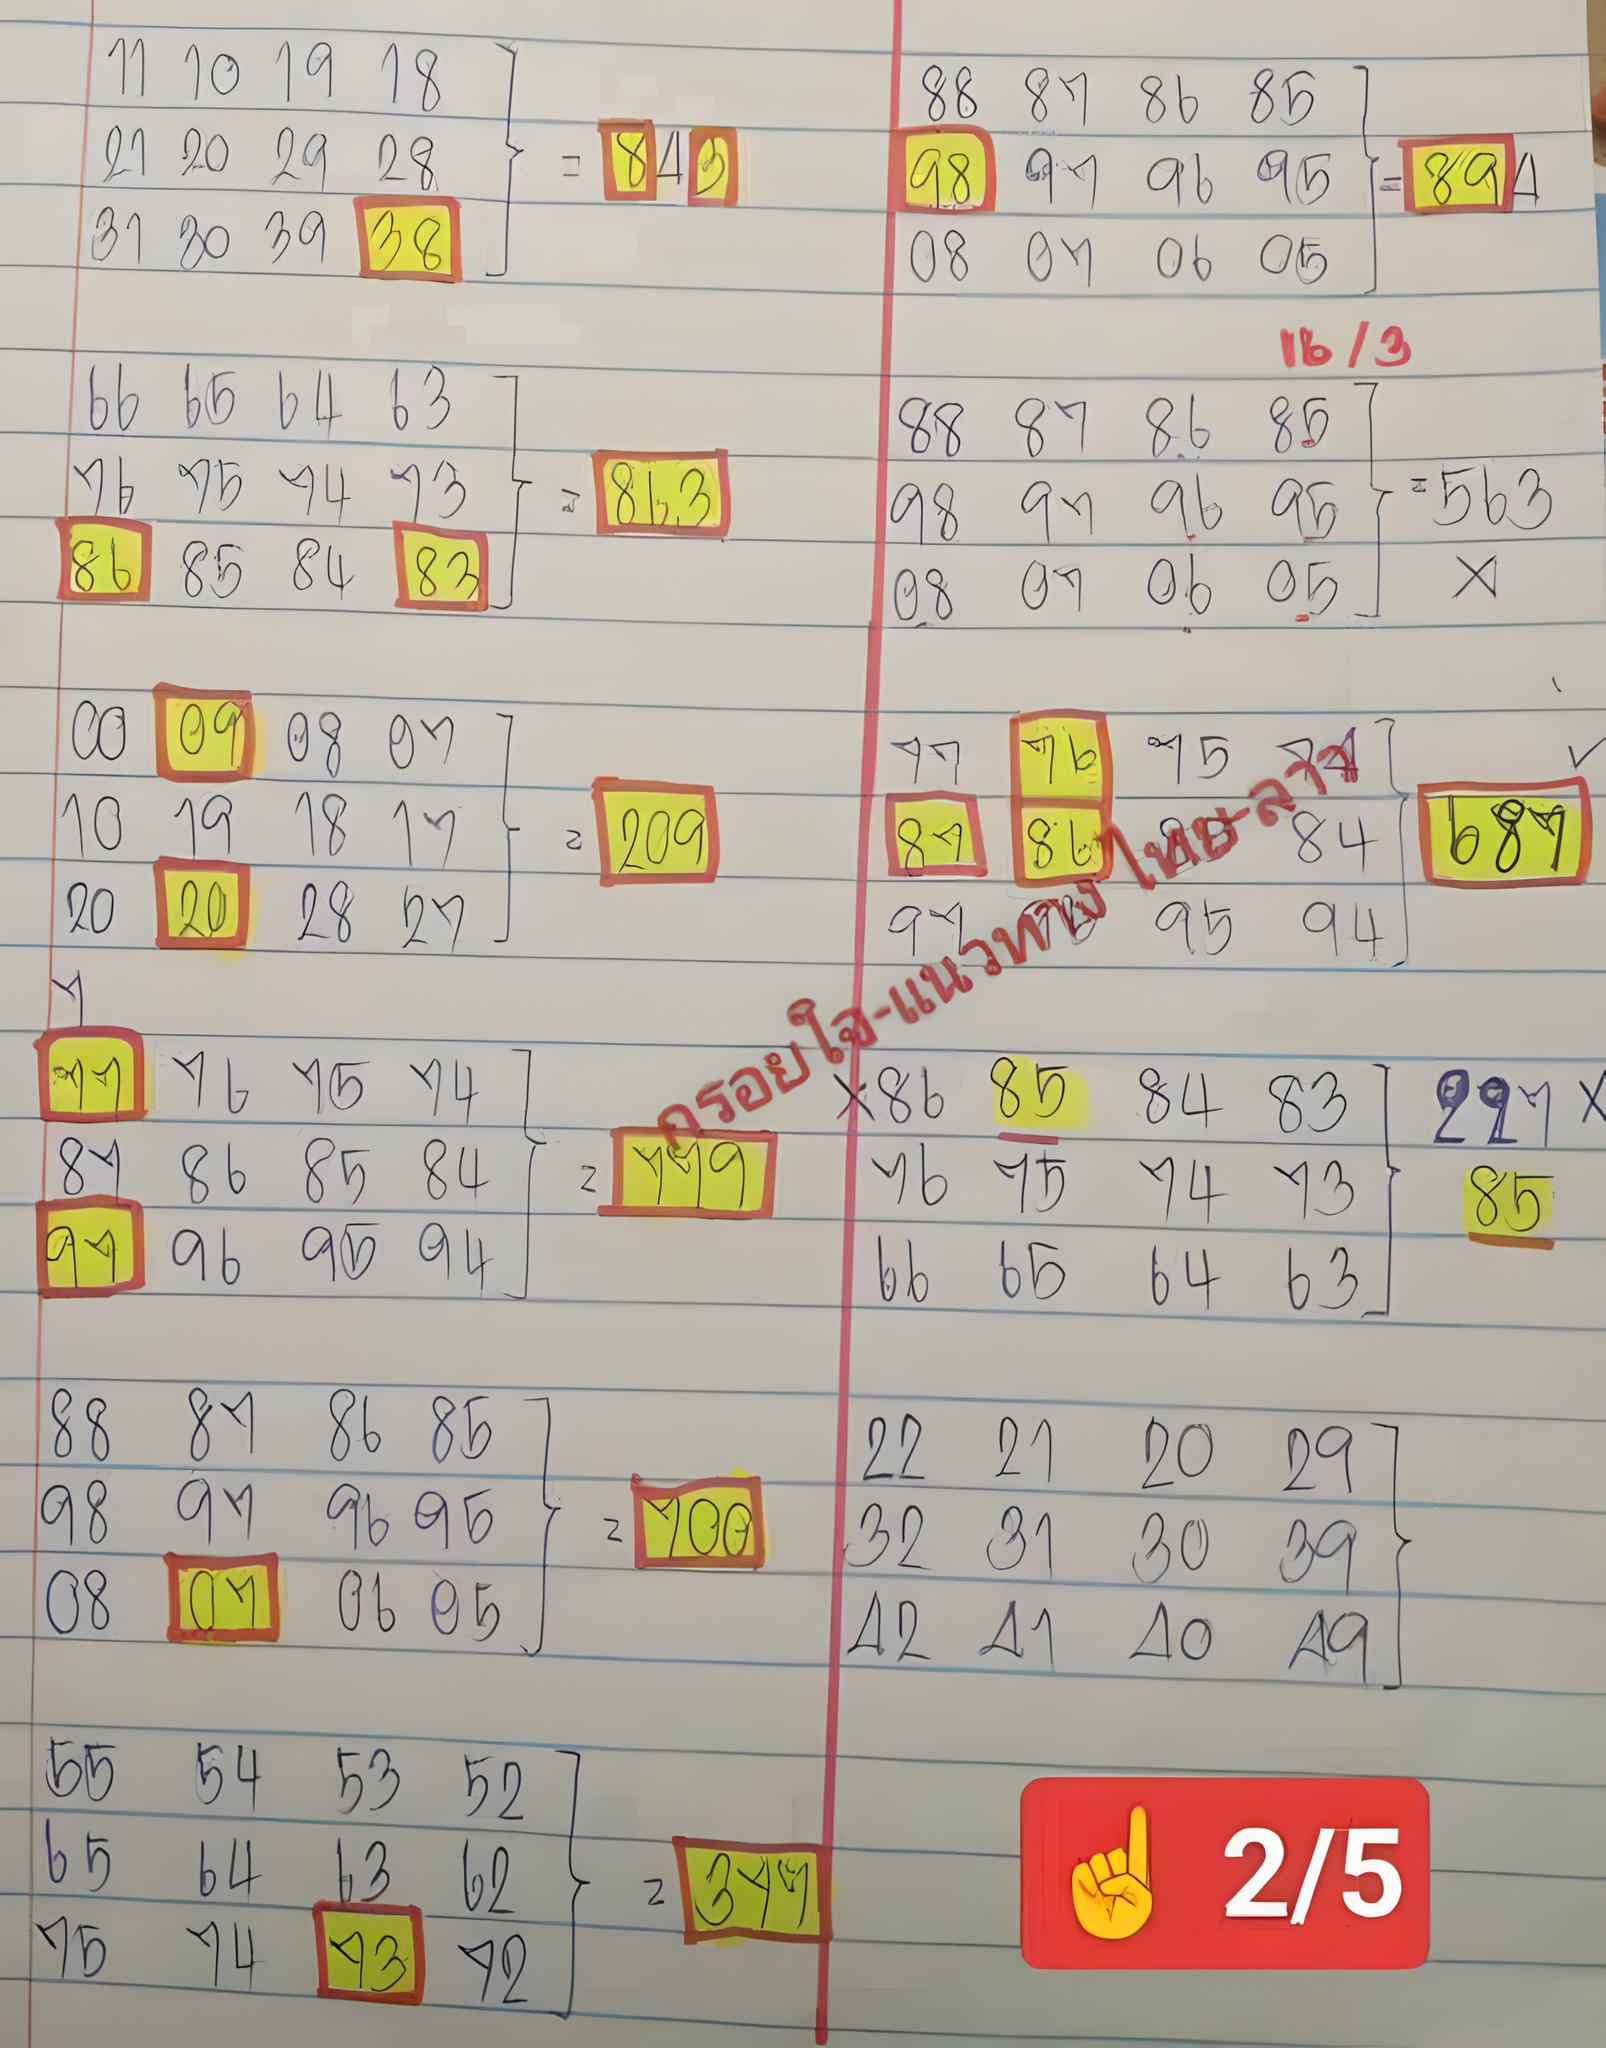 11 10 19 18
21 20 29 28 = 843
31 30 39 38
66 65 64 63
76 75 74 73 = 863
86 85 84 83
00 09 08 07
10 19 18 17 = 209
20 20 28 27
7
77 76 75 74
87 86 85 84 = 779
97 96 95 94
88 87 86 85
98 97 96 95 = 700
08 07 06 05
55 54 53 52
65 64 63 62 = 377
75 74 73 72
88 87 86 85
98 97 96 95 = 894
08 07 06 05
16/3
88 87 86 85
98 97 96 95 = 563
08 07 06 05 X
77 76 75 74 ✓
87 86 85 84 687
97 96 95 94
กรอยใจ-แนวทางไทย-ลาว
X 86 85 84 83 227 X
76 75 74 73 85
66 65 64 63
22 21 20 29
32 31 30 39
42 41 40 49
☝ 2/5